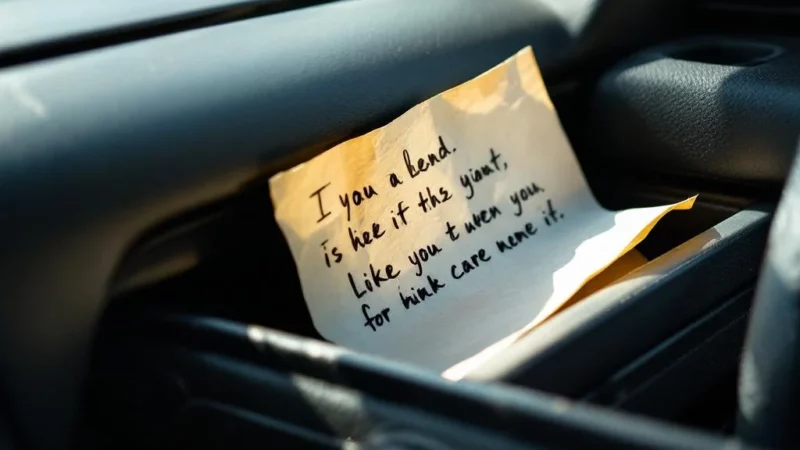 I you a bend.
is hee if ths yiout,
Like you t uven you.
for hink care nene it.